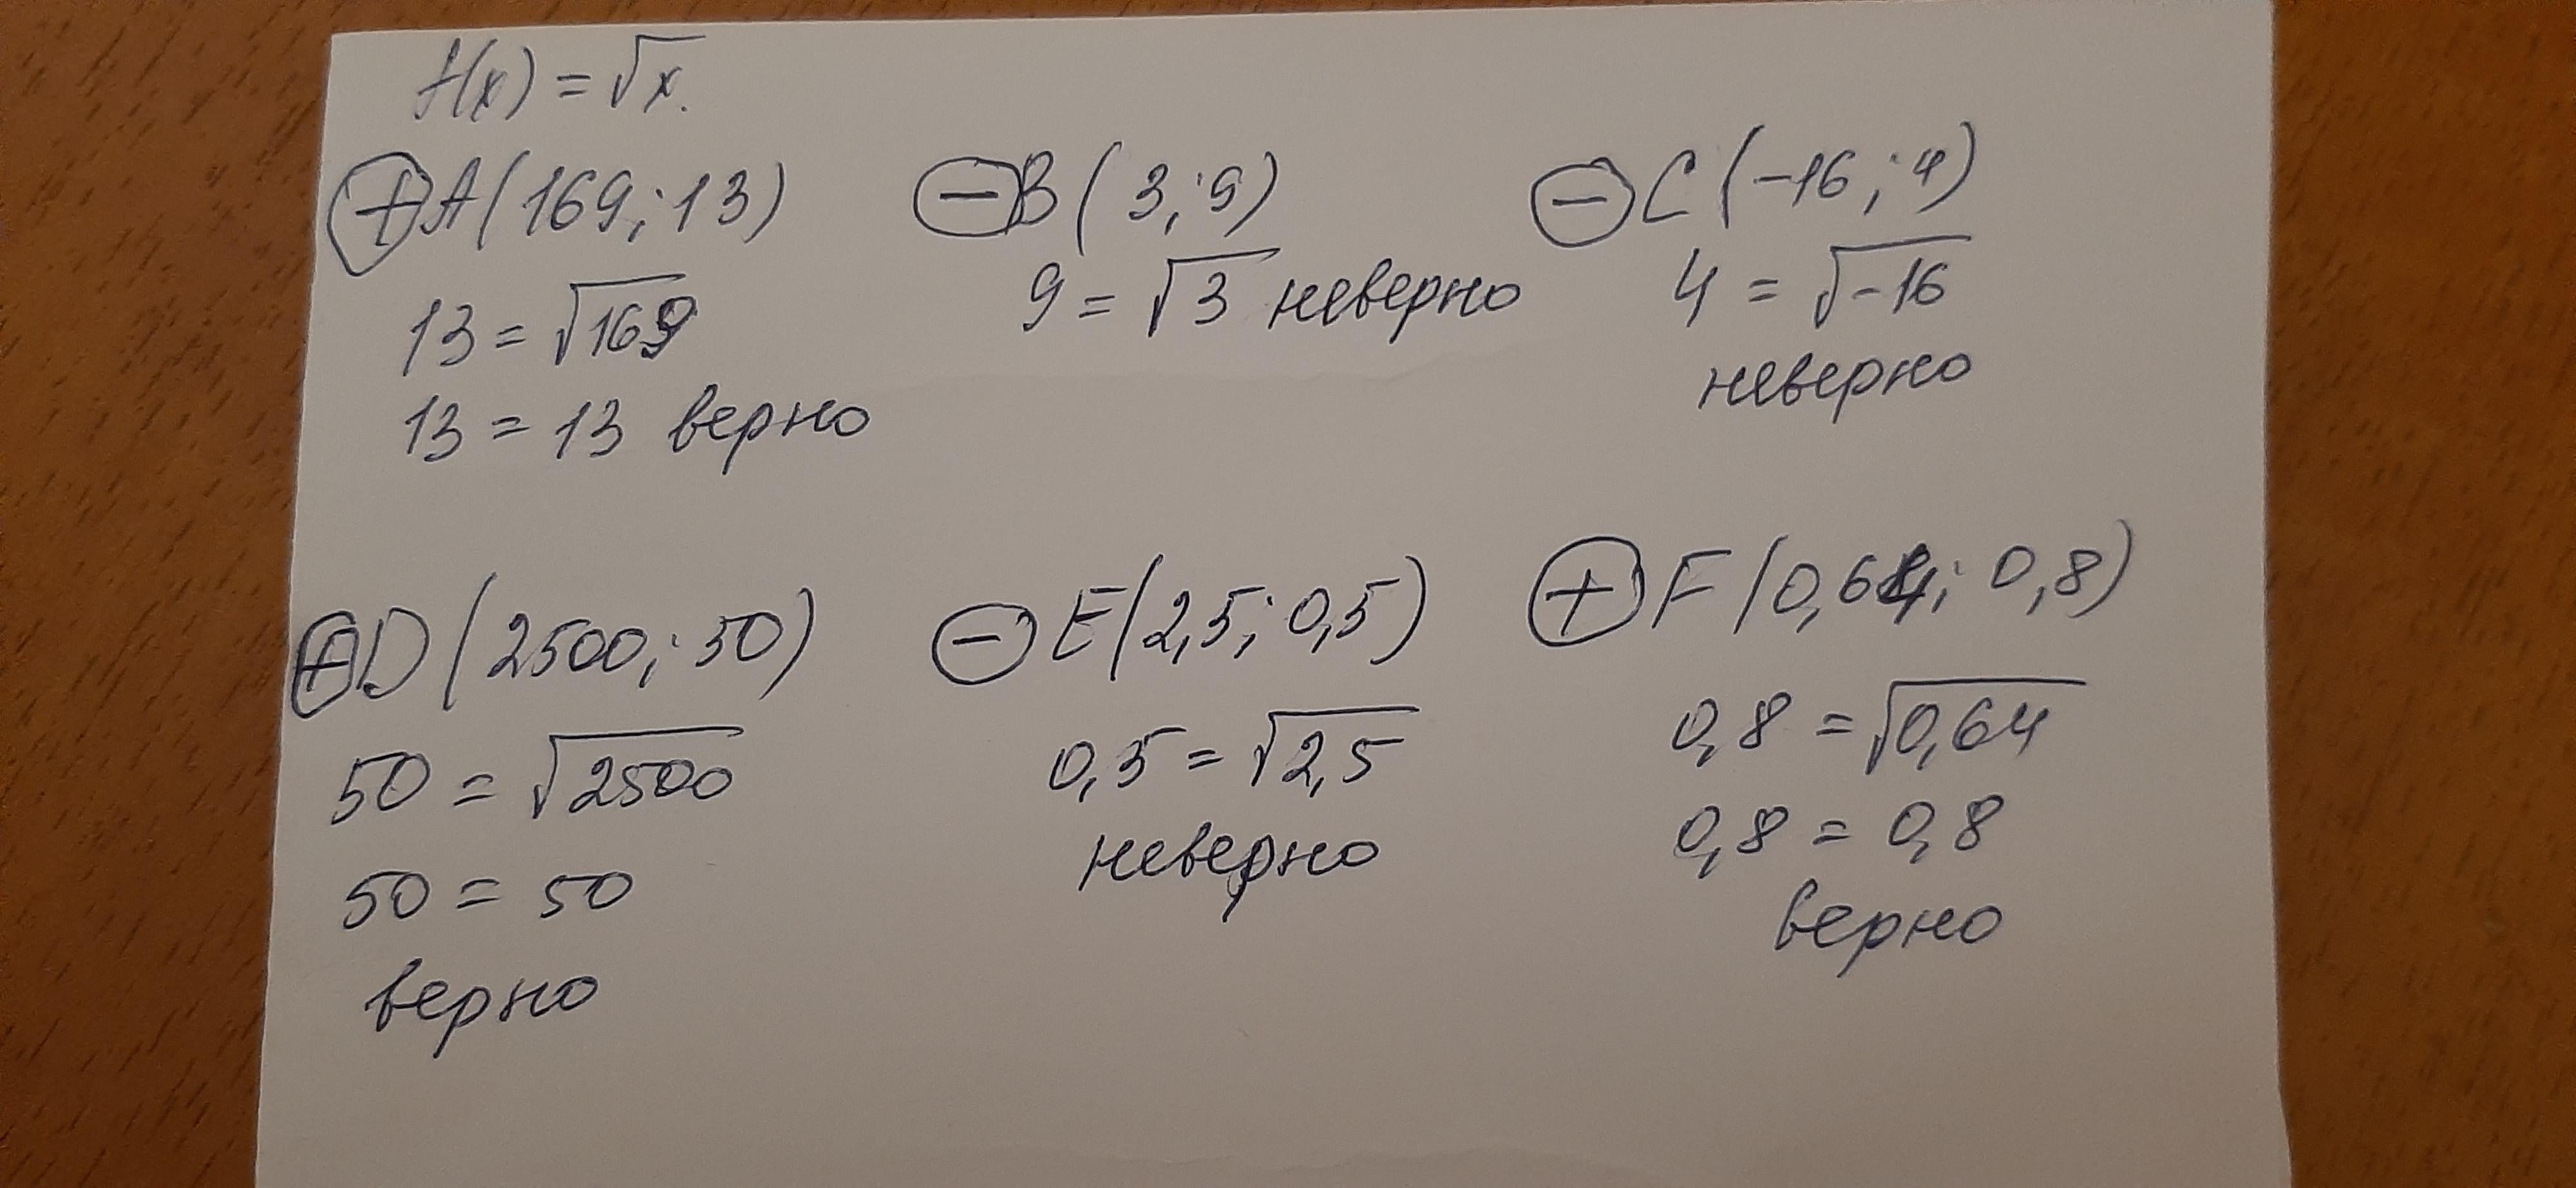 f(x) = √x.
⊕ A(169; 13)
13 = √169
13 = 13 верно
⊖ B(3; 9)
9 = √3 неверно
⊖ C(-16; 4)
4 = √-16
неверно
⊕ D(2500; 50)
50 = √2500
50 = 50
верно
⊖ E(2,5; 0,5)
0,5 = √2,5
неверно
⊕ F(0,64; 0,8)
0,8 = √0,64
0,8 = 0,8
верно